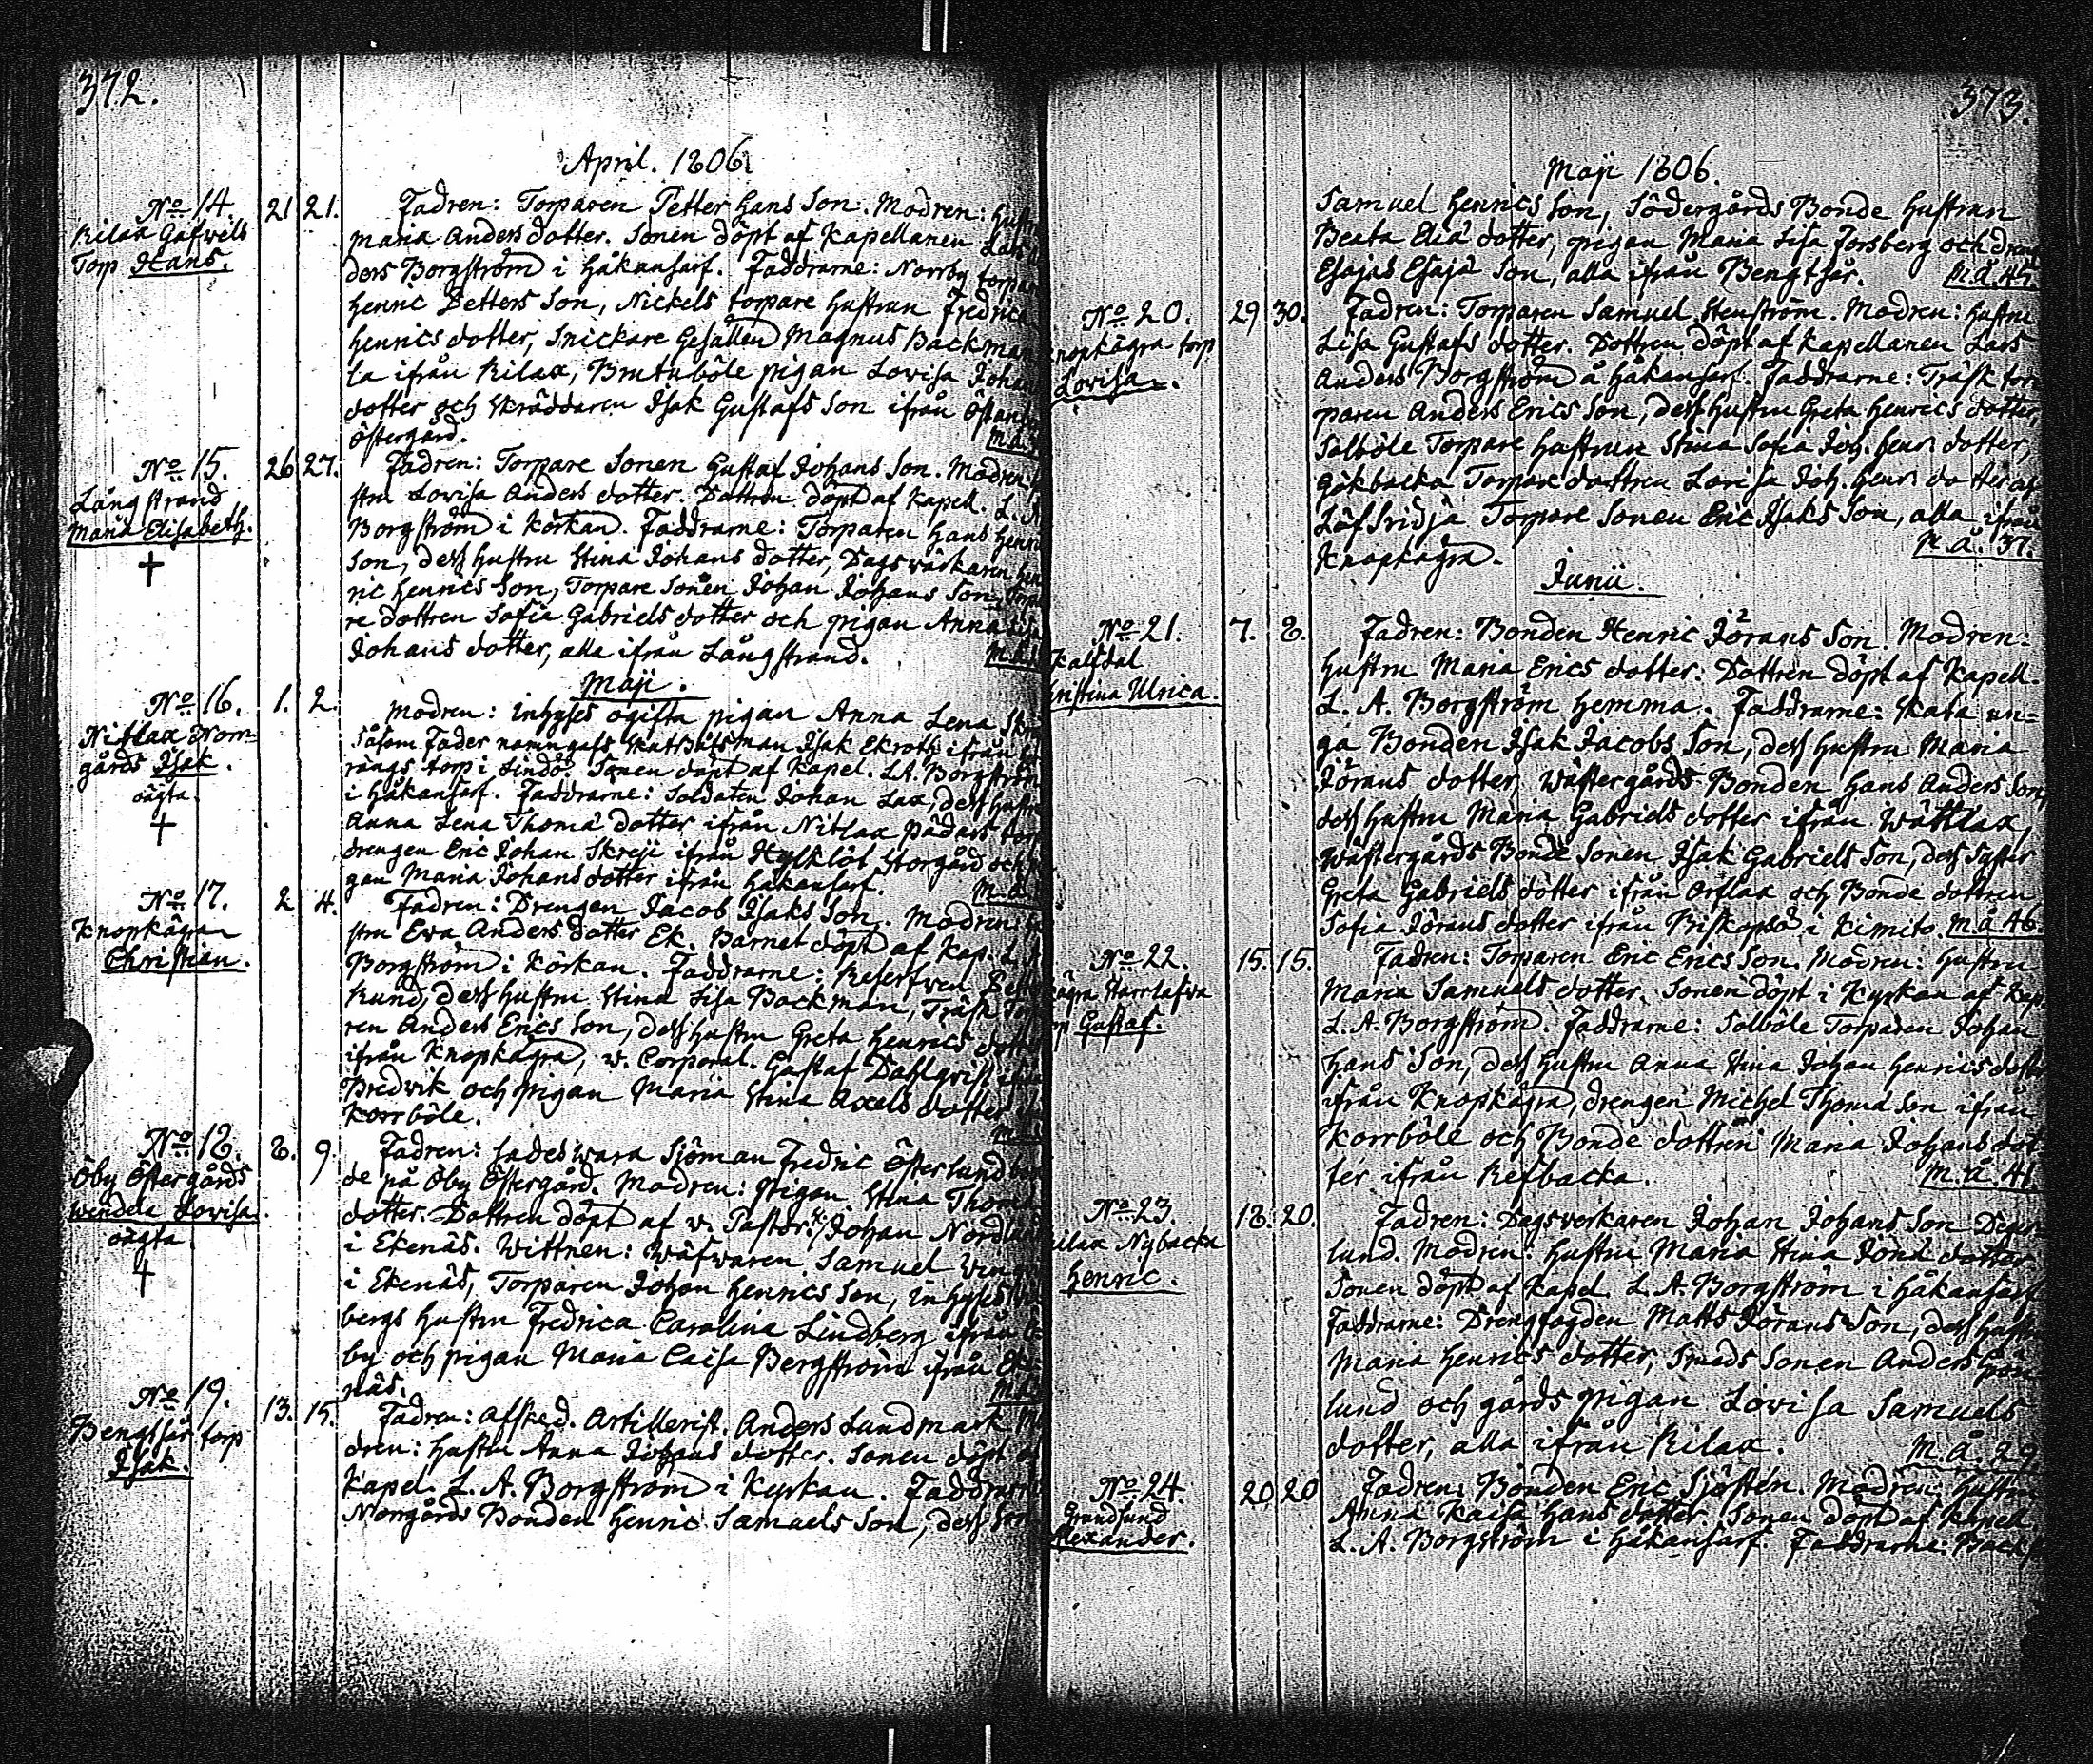 372.
April. 1806.
No 14. 21 21. Fadren: Torparen Petter Hans Son. Modren: Hustr
Rilax Gafwels Maria Anders dotter. Sonen döpt af Kapellanen Lars
Torp Hans. ders Borgström i Håkansarf. Faddrarne: Norrby torpar
Henric Petters Son, Nickels torpare hustrun Fredrica
Henrics dotter, Snickare Gesällen Magnus Backman
la ifrån Rilax, Brutuböle pigan Lovisa Johan
dotter och Skräddaren Isak Gustafs Son ifrån
Östergård. M.å.
No 15. 26 27. Fadren: Torpare Sonen Gustaf Johans Son. Modren:
Långstrand stru Lovisa Anders dotter. Dottren döpt af Kapell. L. A.
Maria Elisabeth. Borgström i Körkan. Faddrarne: Torparen Hans Henri
† Son, dess hustru Stina Johans dotter, Dagsvärkaren Hen
ric Henrics Son, Torpare Sonen Johan Johans Son,
re dottren Sofia Gabriels dotter och pigan Anna Lisa
Johans dotter, alla ifrån Långstrand. M.å.
Maji.
No 16. 1. 2. Modren: inhyses ogifta pigan Anna Lena
Nitlax Norr= Såsom Fader namngafs Skatt Båtsman Isak Ekroth ifrån
gårds Isak. rängs torp i Lindö. Sonen döpt af Kapel. L.A. Borgström
oägta. i Håkansarf. Faddrarne: Soldaten Johan Lax, dess hustru
† Anna Lena Thoma dotter ifrån Nitlax Pådars torp
drengen Eric Johan Skreji ifrån Hylklöt Storgård och
gan Maria Johans dotter ifrån Håkansarf. M.å.
No 17. 2 4. Fadren: Drengen Jacob Isaks Son. Modren:
Knopkägra stru Ewa Anders dotter Ek. Barnet döpt af Kap. L. A.
Christian. Borgström i Körkan. Faddrarne: Reserfven Pett
Rund, dess hustru Stina Lisa Backman, Träsk Tor
ren Anders Erics Son, dess hustru Greta Henrics dotter
ifrån Knopkägra, v. Corporal. Gustaf Dahlqvist
Bredvik och pigan Maria Stina Axels dotter
Korrböle.
No 18. 8. 9. Fadren: Sades wara Sjöman Fredric Österlund
Öby Östergårds de på Öby Östergård. Modren: pigan Stina Thoma
Wendela Lovisa. dotter. Dottren döpt af v. Pastor: Johan Nordlund
oägta i Ekenäs. Wittnen: Wäfwaren Samuel
† i Ekenäs, Torparen Johan Henrics Son, inhyses
bergs Hustru Fredrica Carolina Lindberg ifrån
by och pigan Maria Caisa Bergström ifrån Eke
näs.
No 19. 13. 15. Fadren: Afsked. Artillerist. Anders Lundmark Mo
Bengtsår torp dren: Hustru Anna Johans dotter. Sonen döpt af
Isak. Kapel. L. A. Borgström i Kyrkan. Faddrarne
Norrgårds Bonden Henric Samuels Son, dess Son
373.
Maji 1806.
Samuel Henrics Son, Södergårds Bonde Hustrun
Beata Eliæ dotter, pigan Maria Lisa Forsberg och dreng
Esajas Esajæ Son, alla ifrån Bengtsår. M.å. 45.
No 20. 29 30. Fadren: Torparen Samuel Stenström. Modren: Hustru
nopkägra torp Lisa Gustafs dotter. Dottren döpt af Kapellanen Lars
Lovisa. Anders Borgström å Håkansarf. Faddrarne: Träsk tor
paren Anders Erics Son, dess hustru Greta Henrics dotter,
Solböle Torpare hustrun Stina Sofia Joh. Henr. dotter,
Gökbacka Torpare dottren Lovisa Joh. Henr. dotter af
Löfsridja Torpare Sonen Eric Isaks Son, alla ifrån
Knopkägra. M.å. 37.
Junii.
No 21. 7. 8. Fadren: Bonden Henric Jörans Son. Modren:
Kalfdal Hustru Maria Erics dotter. Dottren döpt af Kapell.
hristina Ulrica. L. A. Borgström hemma. Faddrarne: Skata un=
ga Bonden Isak Jacobs Son, dess hustru Maria
Jörans dotter, Wästergårds Bonden Hans Anders Son,
dess hustru Maria Gabriels dotter ifrån Wättlax,
Wästergårds Bonde Sonen Isak Gabriels Son, dess Syster
Greta Gabriels dotter ifrån Orslax och Bonde dottren
Sofia Jörans dotter ifrån Biskopsö i Kimito. M.å 46.
No 22. 15. 15. Fadren: Torparen Eric Erics Son. Modren: Hustru
kägra Starrlafwa Maria Samuels dotter. Sonen döpt i Kyrkan af Kap.
rp Gustaf. L. A. Borgström. Faddrarne: Solböle Torparen Johan
Hans Son, dess hustru Anna Stina Johan Henrics dotter
ifrån Knopkägra, drengen Michel Thomæ Son ifrån
Korrböle och Bonde dottren Maria Johans dot
ter ifrån Refbacka. M.å. 41.
No 23. 18. 20. Fadren: Dagsverkaren Johan Johans Son Deger
ilax Nybacka lund. Modren: hustru Maria Stina Jonæ dotter.
Henric. Sonen döpt af Kapel. L. A. Borgström i Håkansarf
Faddrarne: Drengfogden Matts Jörans Son, dess hustru
Maria Henrics dotter, Smeds Sonen Anders Grön
lund och gårds pigan Lovisa Samuels
dotter, alla ifrån Rilax. M.å. 29.
No 24. 20 20 Fadren: Bonden Eric Sjöstén. Modren: Hustru
Grundsund Anna Kaisa Hans dotter. Sonen döpt af Kapell.
Alexander. L. A. Borgström i Håkansarf. Faddrarne: Back